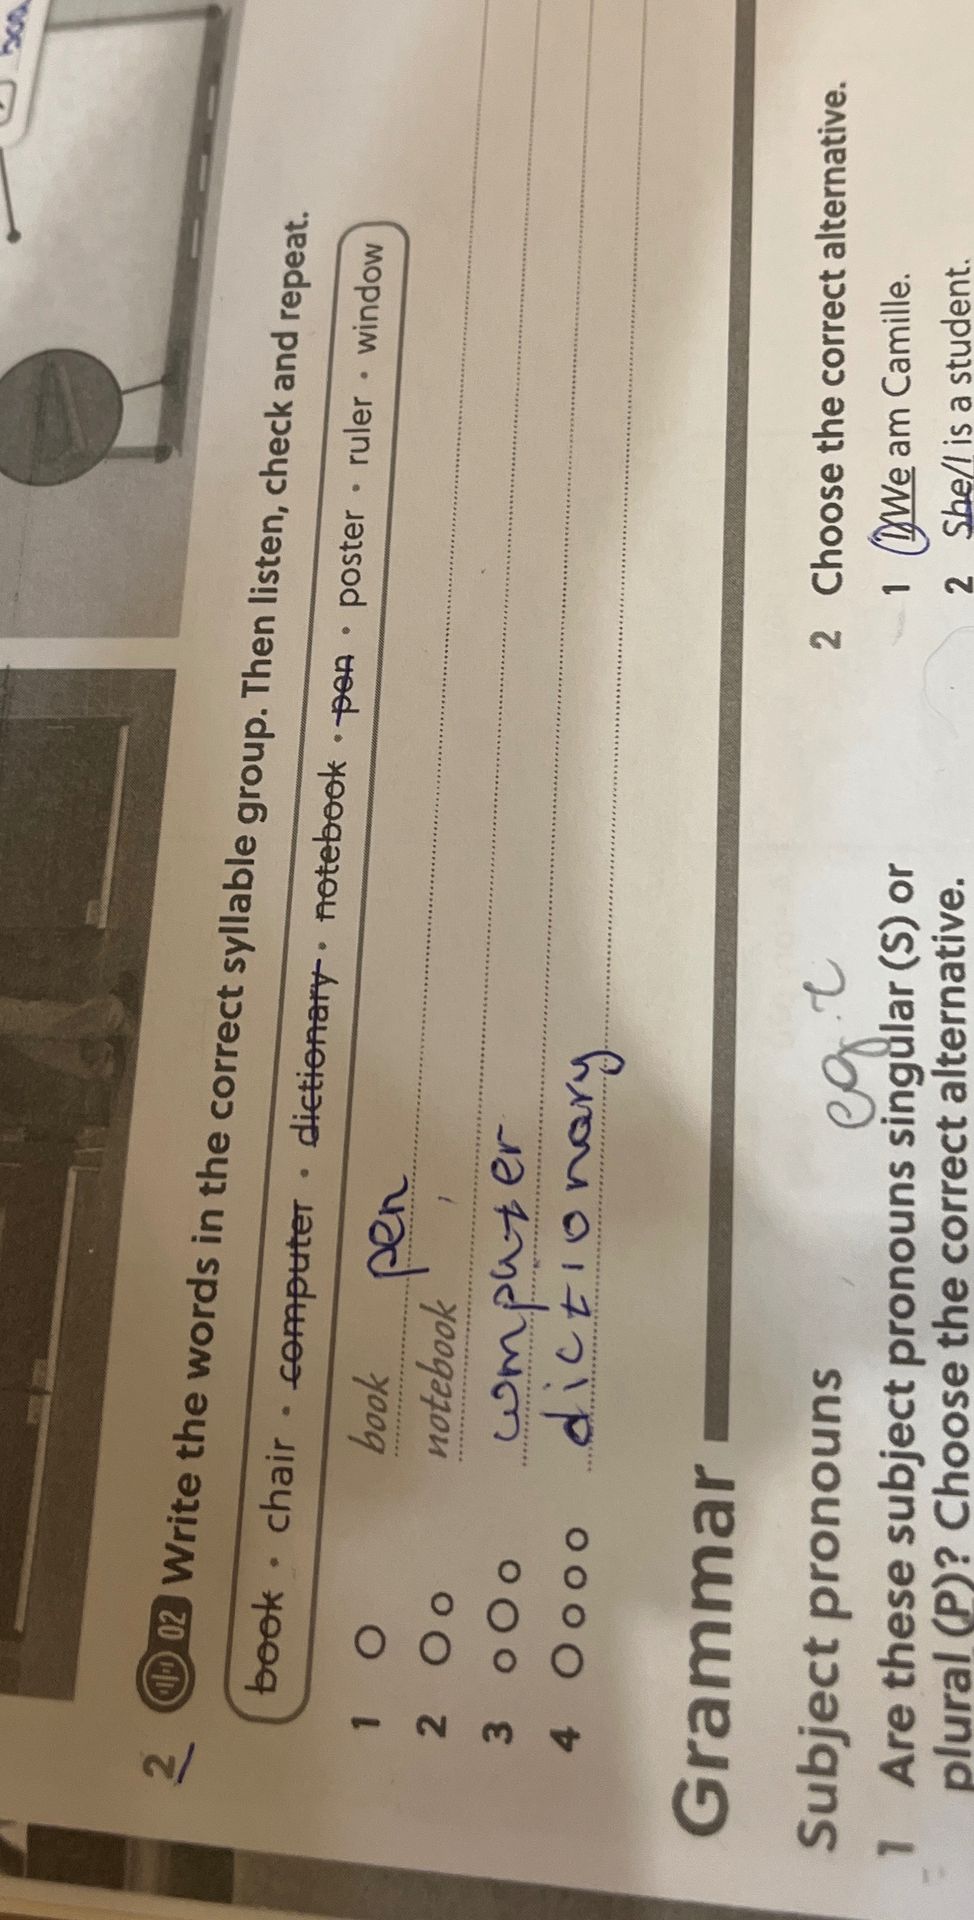 2 02 Write the words in the correct syllable group. Then listen, check and repeat.
book · chair · computer · dictionary · notebook · pen · poster · ruler · window
1 book pen
2 notebook ,
3 computer
4 dictionary
Grammar
Subject pronouns
1 Are these subject pronouns singular (S) or
plural (P)? Choose the correct alternative.
2 Choose the correct alternative.
1 I/We am Camille.
2 She/I is a student.